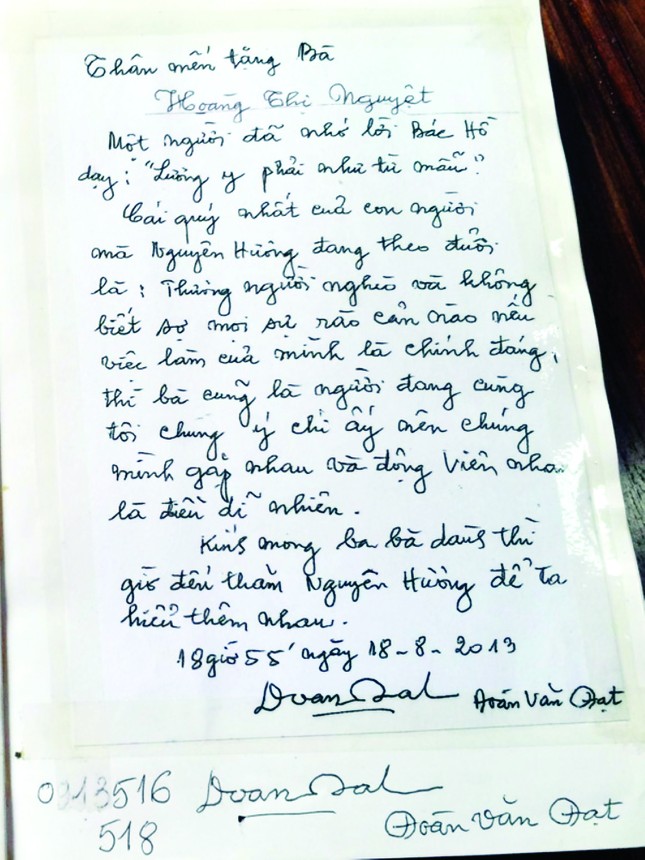 Thân mến tặng Bà
Hoàng Thị Nguyệt
Một người đã nhớ lời Bác Hồ
dạy: "Lương y phải như từ mẫu".
Cái quý nhất của con người
mà Nguyên Hường đang theo đuổi
là: Thương người nghèo và không
biết sợ mọi sự rào cản nào nếu
việc làm của mình là chính đáng,
thì bà cũng là người đang cùng
tôi chung ý chí ấy nên chúng
mình gặp nhau và động viên nha
là điều dĩ nhiên.
Kính mong ba bà dành thì
giờ đến thăm Nguyên Hường để ta
hiểu thêm nhau.
18giờ 55' ngày 18-8-2013
Doan Dat Đoán Văn Đạt
0913516 Doan Dat
518 Đoán Văn Đạt